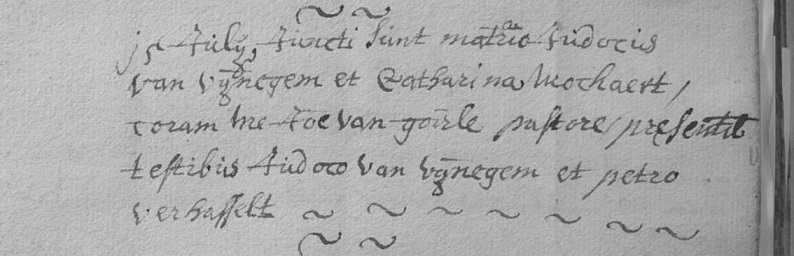 15 July, Juncti sunt matrio Judocus
van vÿnegem et Catharina Mochaert,
coram me Joe van goirle pastore, presentib
testibus Judoco van vÿnegem et petro
verhasselt